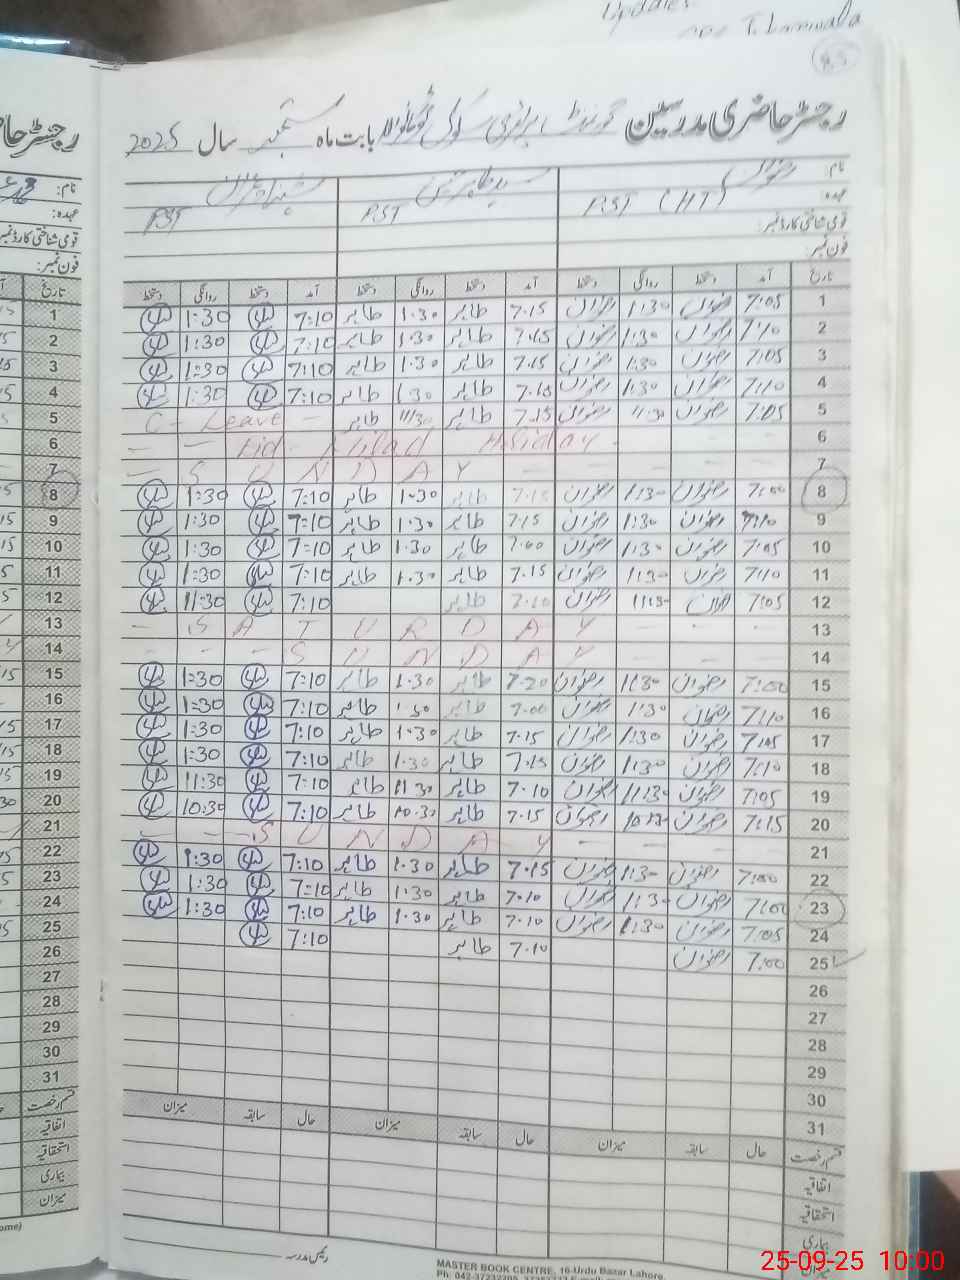 Updates.
85
رجسٹر حاضری مدرسین گورنمنٹ پرائمری سکول ٹھٹھانوالا بابت ماہ ستمبر سال 2025
نام: رضوان
عہدہ: PST (HT) PST PST
قومی شناختی کارڈ نمبر:
فون نمبر:
تاریخ آمد دستخط روانگی دستخط آمد دستخط روانگی دستخط آمد دستخط روانگی دستخط
1 7:05 رضوان 1:30 رضوان 7.15 طاہر 1.30 طاہر 7:10 1:30
2 7:10 رضوان 1:30 رضوان 7.15 طاہر 1.30 طاہر 7:10 1:30
3 7:05 رضوان 1:30 رضوان 7.15 طاہر 1.30 طاہر 7:10 1:30
4 7:10 رضوان 1:30 رضوان 7.15 طاہر 1.30 طاہر 7:10 1:30
5 7:05 رضوان 11:30 رضوان 7.15 طاہر 11:30 طاہر C - Leave -
6 - - Eid - Milad Holiday -
7 - S U N D A Y - - - -
8 7:00 رضوان 1:30 رضوان 7.15 طاہر 1.30 طاہر 7:10 1:30
9 7:10 رضوان 1:30 رضوان 7.15 طاہر 1.30 طاہر 7:10 1:30
10 7:05 رضوان 1:30 رضوان 7.00 طاہر 1.30 طاہر 7:10 1:30
11 7:10 رضوان 1:30 رضوان 7.15 طاہر 1.30 طاہر 7:10 1:30
12 7:05 رضوان 11:30 رضوان 7.10 طاہر 7:10 11:30
13 - S A T U R D A Y - - -
14 - - - S U N D A Y - - -
15 7:00 رضوان 1:30 رضوان 7.20 طاہر 1.30 طاہر 7:10 1:30
16 7:10 رضوان 1:30 رضوان 7.00 طاہر 1.30 طاہر 7:10 1:30
17 7:05 رضوان 1:30 رضوان 7.15 طاہر 1.30 طاہر 7:10 1:30
18 7:10 رضوان 1:30 رضوان 7.15 طاہر 1.30 طاہر 7:10 1:30
19 7:05 رضوان 11:30 رضوان 7.10 طاہر 11.30 طاہر 7:10 11:30
20 7:15 رضوان 10:30 رضوان 7.15 طاہر 10.30 طاہر 7:10 10:30
21 - - S U N D A Y - - - -
22 7:00 رضوان 1:30 رضوان 7.15 طاہر 1.30 طاہر 7:10 1:30
23 7:00 رضوان 1:30 رضوان 7.10 طاہر 1.30 طاہر 7:10 1:30
24 7:05 رضوان 1:30 رضوان 7.10 طاہر 1.30 طاہر 7:10 1:30
25 7:00 رضوان 7.10 طاہر 7:10
26
27
28
29
30
31
قسم رخصت حال سابقہ میزان حال سابقہ میزان حال سابقہ میزان
اتفاقیہ
استحقاقیہ
بیماری
رئیس مدرسہ
MASTER BOOK CENTRE, 16-Urdu Bazar Lahore.
Ph: 042-37232705,
رجسٹر حا
نام:
عہدہ:
قومی شناختی کارڈ نمبر
فون نمبر:
تاریخ
1
2
3
4
5
6
7
8
9
10
11
12
13
14
15
16
17
18
19
20
21
22
23
24
25
26
27
28
29
30
31
قسم رخصت
اتفاقیہ
استحقاقیہ
بیماری
میزان
25-09-25 10:00